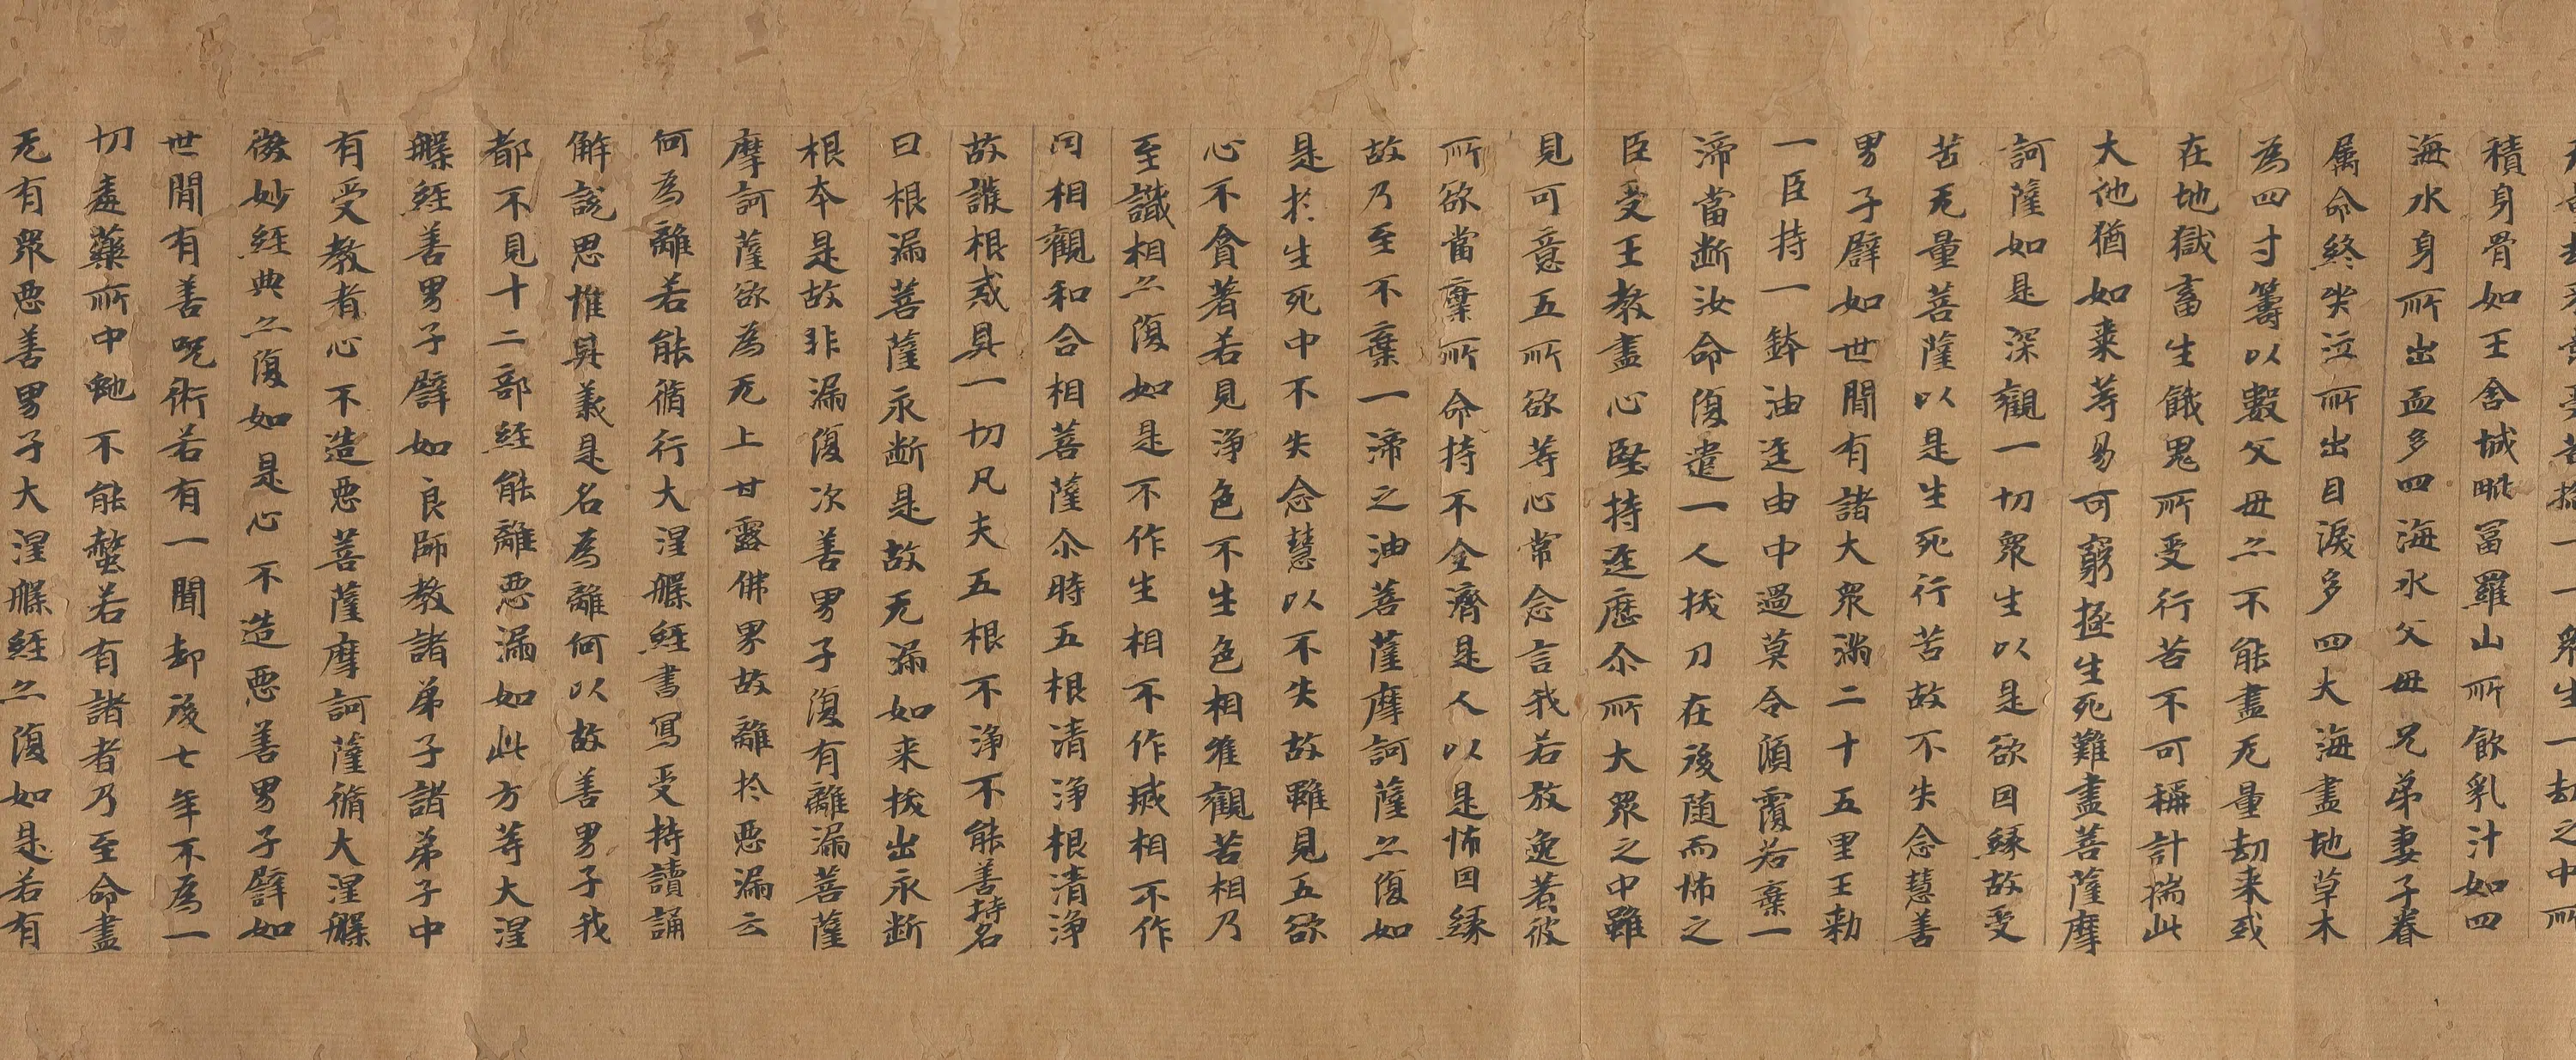 一一眾生一劫之中所
積身骨如王舍城毗冨羅山所飲乳汁如四
海水身所出血多四海水父母兄弟妻子眷
属命終哭泣所出目淚多四大海盡地草木
為四寸籌以數父母亦不能盡无量劫来或
在地獄畜生餓鬼所受行苦不可稱計揣此
大地猶如棗等易可窮極生死難盡菩薩摩
訶薩如是深觀一切眾生以是欲因緣故受
苦无量菩薩以是生死行苦故不失念慧善
男子譬如世間有諸大眾滿二十五里王勅
一臣持一鉢油逕由中過莫令傾覆若棄一
渧當断汝命復遣一人拔刀在後随而怖之
臣受王教盡心堅持逕歷尒所大眾之中雖
見可意五所欲等心常念言我若放逸著彼
所欲當棄所命持不全濟是人以是怖因緣
故乃至不棄一渧之油菩薩摩訶薩亦復如
是於生死中不失念慧以不失故雖見五欲
心不貪著若見淨色不生色相唯觀苦相乃
至識相亦復如是不作生相不作滅相不作
因相觀和合相菩薩尒時五根清淨根清淨
故護根戒具一切凡夫五根不淨不能善持名
曰根漏菩薩永断是故无漏如来拔出永断
根本是故非漏復次善男子復有離漏菩薩
摩訶薩欲為无上甘露佛果故離於惡漏云
何為離若能脩行大涅槃經書寫受持讀誦
解說思惟其義是名為離何以故善男子我
都不見十二部經能離惡漏如此方等大涅
槃經善男子譬如良師教諸弟子諸弟子中
有受教者心不造惡菩薩摩訶薩脩大涅槃
微妙經典亦復如是心不造惡善男子譬如
世間有善呪術若有一聞却後七年不為一
切毒藥所中虵不能螫若有諸者乃至命盡
无有眾惡善男子大涅槃經亦復如是若有